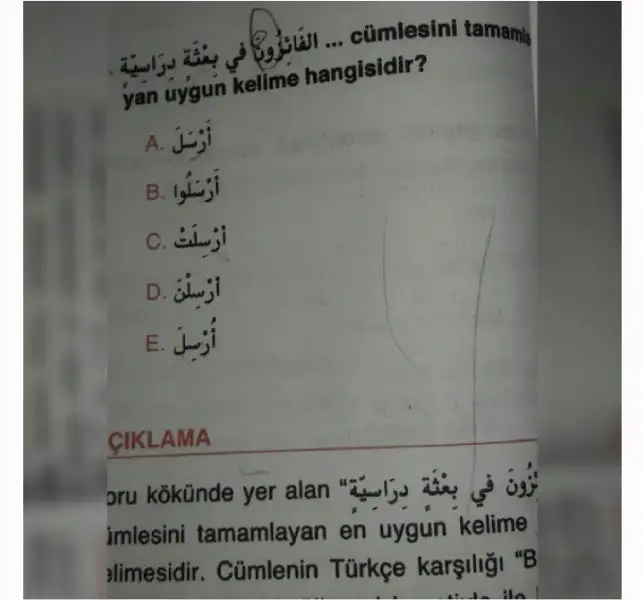 ... الفَائِزُونَ في بِعْثَة دِرَاسِيَّةٍ. cümlesini tamamla
yan uygun kelime hangisidir?
A. أَرْسَلَ
B. أَرْسَلُوا
C. أُرْسِلَتْ
D. أُرْسِلْنَ
E. أُرْسِلَ
ÇIKLAMA
oru kökünde yer alan “ئِزُونَ في بِعْثَة دِرَاسِيَّةٍ
imlesini tamamlayan en uygun kelime
elimesidir. Cümlenin Türkçe karşılığı “B